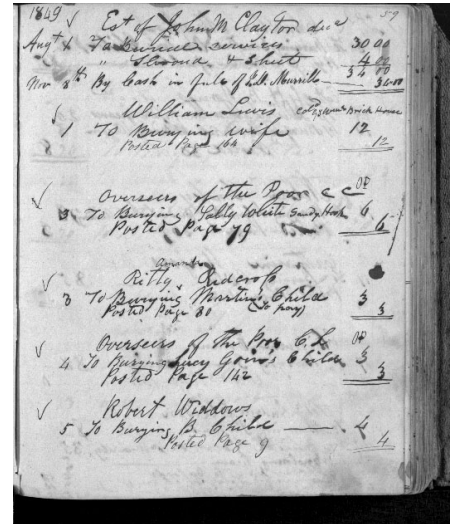 1849 59
Est of John M Clayton decd
Augt 1 To Burial services 30 00
" Shroud & Sheet 4 00
34 00
Nov 8th By Cash in full of 34.00
William Lewis Brick House
1 To Burying wife 12
Posted Page 164 12
Overseers of the Poor C C Dr
3 To Burying Sally White Sandy Hook 6
Posted Page 79 6
Amanda
Kitty Redcross
3 To Burying Martin's Child 3
Posted Page 80 (to pay) 3
Overseers of the Poor C L Dr
4 To Burying Lucy Goin's Child 3
Posted Page 142 3
Robert Widdows
5 To Burying B. Child 4
Posted Page 9 4